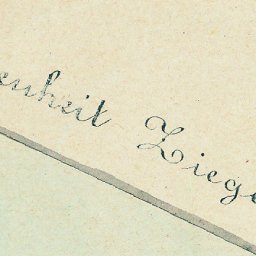 enheit Ziege